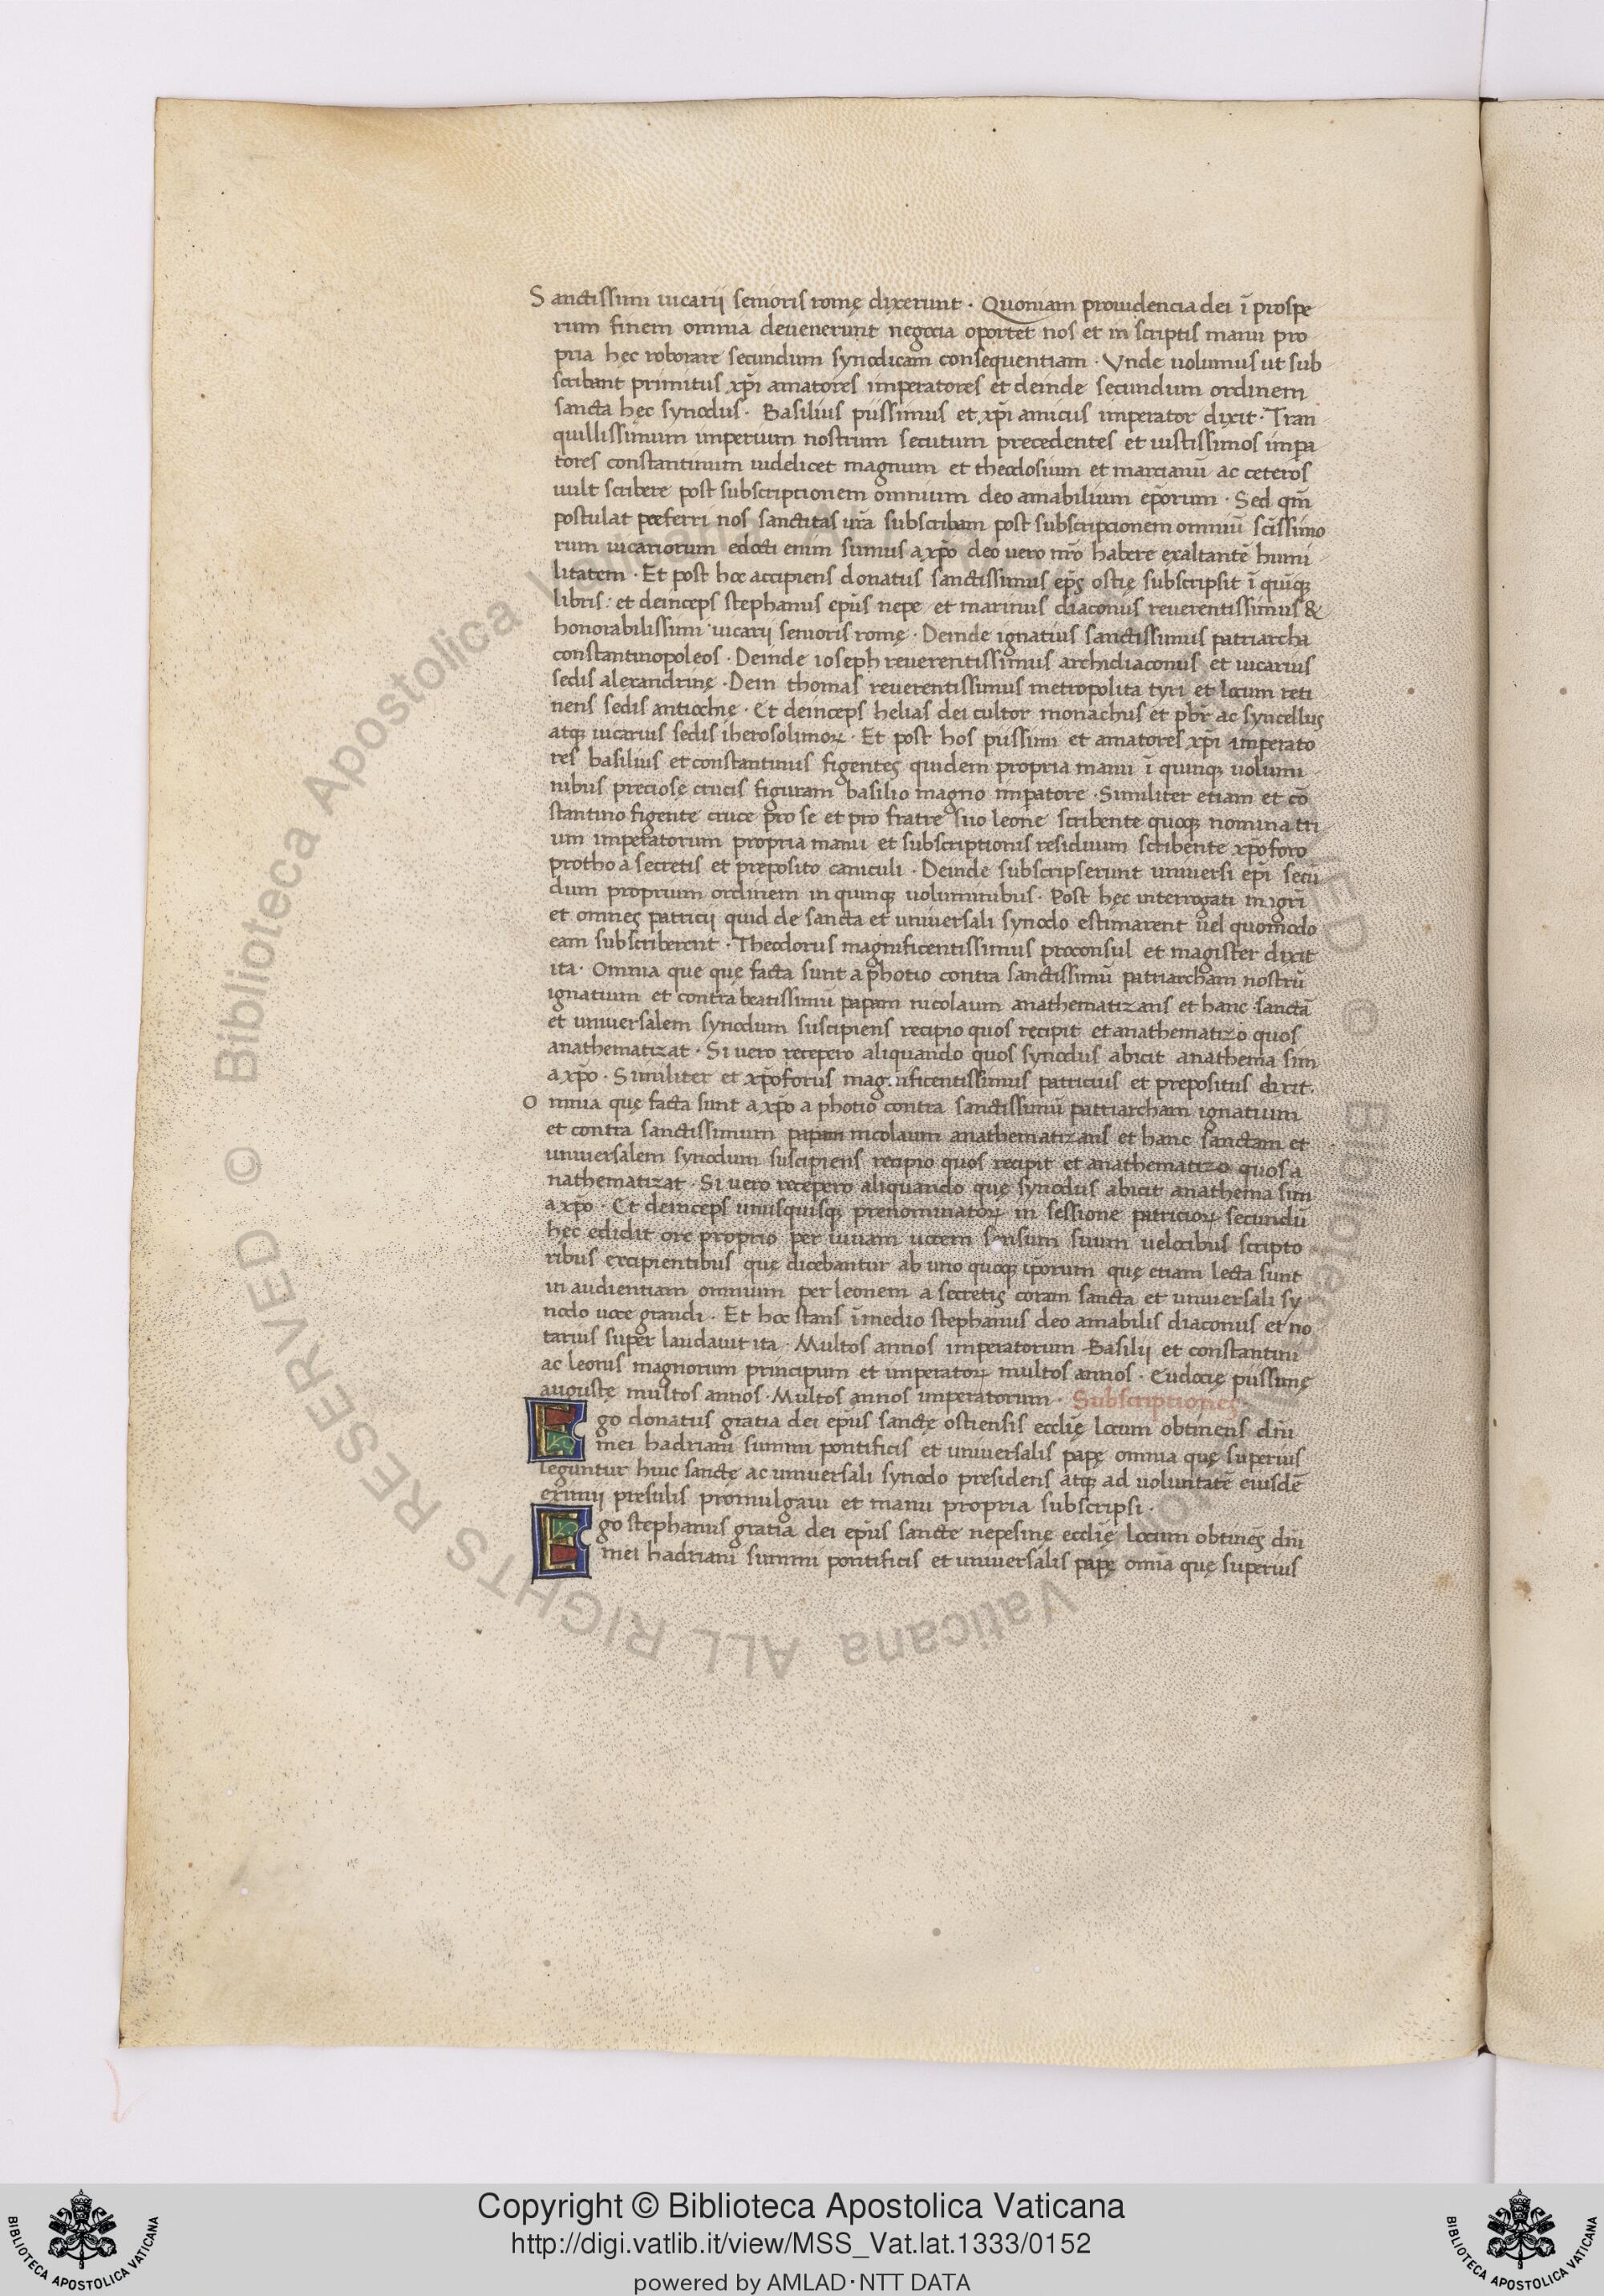 Sanctissimi uicarij senioris romę dixerunt · Quoniam prouidencia dei ī prospe
rum finem omnia deuenerunt negocia oportet nos et in scriptis manu pro
pria hęc roborare secundum synodicam consequentiam · Vnde uolumus ut sub
scribant primitus xp̄i amatores imperatores et deinde secundum ordinem
sancta hęc synodus · Basilius piissimus et xp̄i amicus imperator dixit · Tran
quillissimum imperium nostrum secutum precedentes et iustissimos impa
tores constantinum uidelicet magnum et theodosium et marcianū ac ceteros
uult scribere post subscriptionem omnium deo amabilium ep̄orum · Sed qm̄
postulat preferri nos sanctitas ur̄a subscribam post subscripcionem omniū sc̄issimo
rum uicariorum edocti enim sumus a xp̄o deo uero nr̄o habere exaltantē humi
litatem · Et post hoc accipiens donatus sanctissimus ep̄s ostię subscripsit ī quīqȝ
libris : et deinceps stephanus ep̄us nepe et marinus diaconus reuerentissimus &
honorabilissimi uicarij senioris romę · Deinde ignatius sanctissimus patriarcha
constantinopoleos · Deinde ioseph reuerentissimus archidiaconus et uicarius
sedis alexandrinę · Dein thomas reuerentissimus metropolita tyri et locum reti
nens sedis antiochię · Et deinceps helias dei cultor monachus et pbr̄ ac syncellus
atqȝ uicarius sedis iherosolimoꝝ · Et post hos piissimi et amatores xp̄i imperato
res basilius et constantinus figentes quidem propria manu ī quinqȝ uolumi
nibus preciosę crucis figuram basilio magno impatore · Similiter etiam et cō
stantino figente cruce pro se et pro fratre suo leone scribente quoqȝ nomina tri
um imperatorum propria manu et subscriptionis residuum scribente xp̄oforo
protho a secretis et preposito caniculi · Deinde subscripserunt uniuersi ep̄i secū
dum proprium ordinem in quinqȝ uoluminibus · Post hęc interrogati magr̄i
et omnes patricij quid de sancta et uniuersali synodo estimarent uel quomodo
eam subscriberent · Theodorus magnificentissimus proconsul et magister dixit
ita · Omnia que quę facta sunt a photio contra sanctissimū patriarcham nostrū
ignatium et contra beatissimū papam nicolaum anathematizans et hanc sanctā
et uniuersalem synodum suscipiens recipio quos recipit et anathematizo quos
anathematizat · Si uero recepero aliquando quos synodus abicit anathema sim
a xp̄o · Similiter et xp̄oforus magnificentissimus patricius et prepositus dixit.
Omnia quę facta sunt a xp̄o a photio contra sanctissimū patriarcham ignatium
et contra sanctissimum papam nicolaum anathematizans et hanc sanctam et
uniuersalem synodum suscipiens recipio quos recipit et anathematizo quos a
nathematizat · Si uero recepero aliquando quę synodus abicit anathema sim
a xp̄o · Et deinceps unusquisqȝ prenominatoꝝ in sessione patricioꝝ secundū
hęc edidit ore proprio per uiuam uocem sensum suum uelocibus scripto
ribus excipientibus quę dicebantur ab uno quoqȝ ip̄orum quę etiam lecta sunt
in audientiam omnium per leonem a secretis coram sancta et uniuersali sy
nodo uoce grandi · Et hoc stans ī medio stephanus deo amabilis diaconus et no
tarius super laudauit ita · Multos annos imperatorum Basilij et constantini
ac leonis magnorum principum et imperatoꝝ multos annos · Eudocię piissimę
augustę multos annos · Multos annos imperatorum · Subscriptiones
Ego donatus gratia dei ep̄us sanctę ostiensis eccl̄ię locum obtinens dn̄i
mei hadriani summi pontificis et uniuersalis papę omnia quę superius
leguntur huic sanctę ac uniuersali synodo presidens atqȝ ad uoluntatē eiusdē
eximij presulis promulgaui et manu propria subscripsi ·
Ego stephanus gratia dei ep̄us sancte nepesine eccl̄ię locum obtines dn̄i
mei hadriani summi pontificis et uniuersalis papę omīa quę superius
© Biblioteca Apostolica Vaticana ALL RIGHTS RESERVED © Biblioteca Apostolica Vaticana ALL RIGHTS RESERVED
Copyright © Biblioteca Apostolica Vaticana
http://digi.vatlib.it/view/MSS_Vat.lat.1333/0152
powered by AMLAD·NTT DATA
BIBLIOTECA APOSTOLICA VATICANA
BIBLIOTECA APOSTOLICA VATICANA